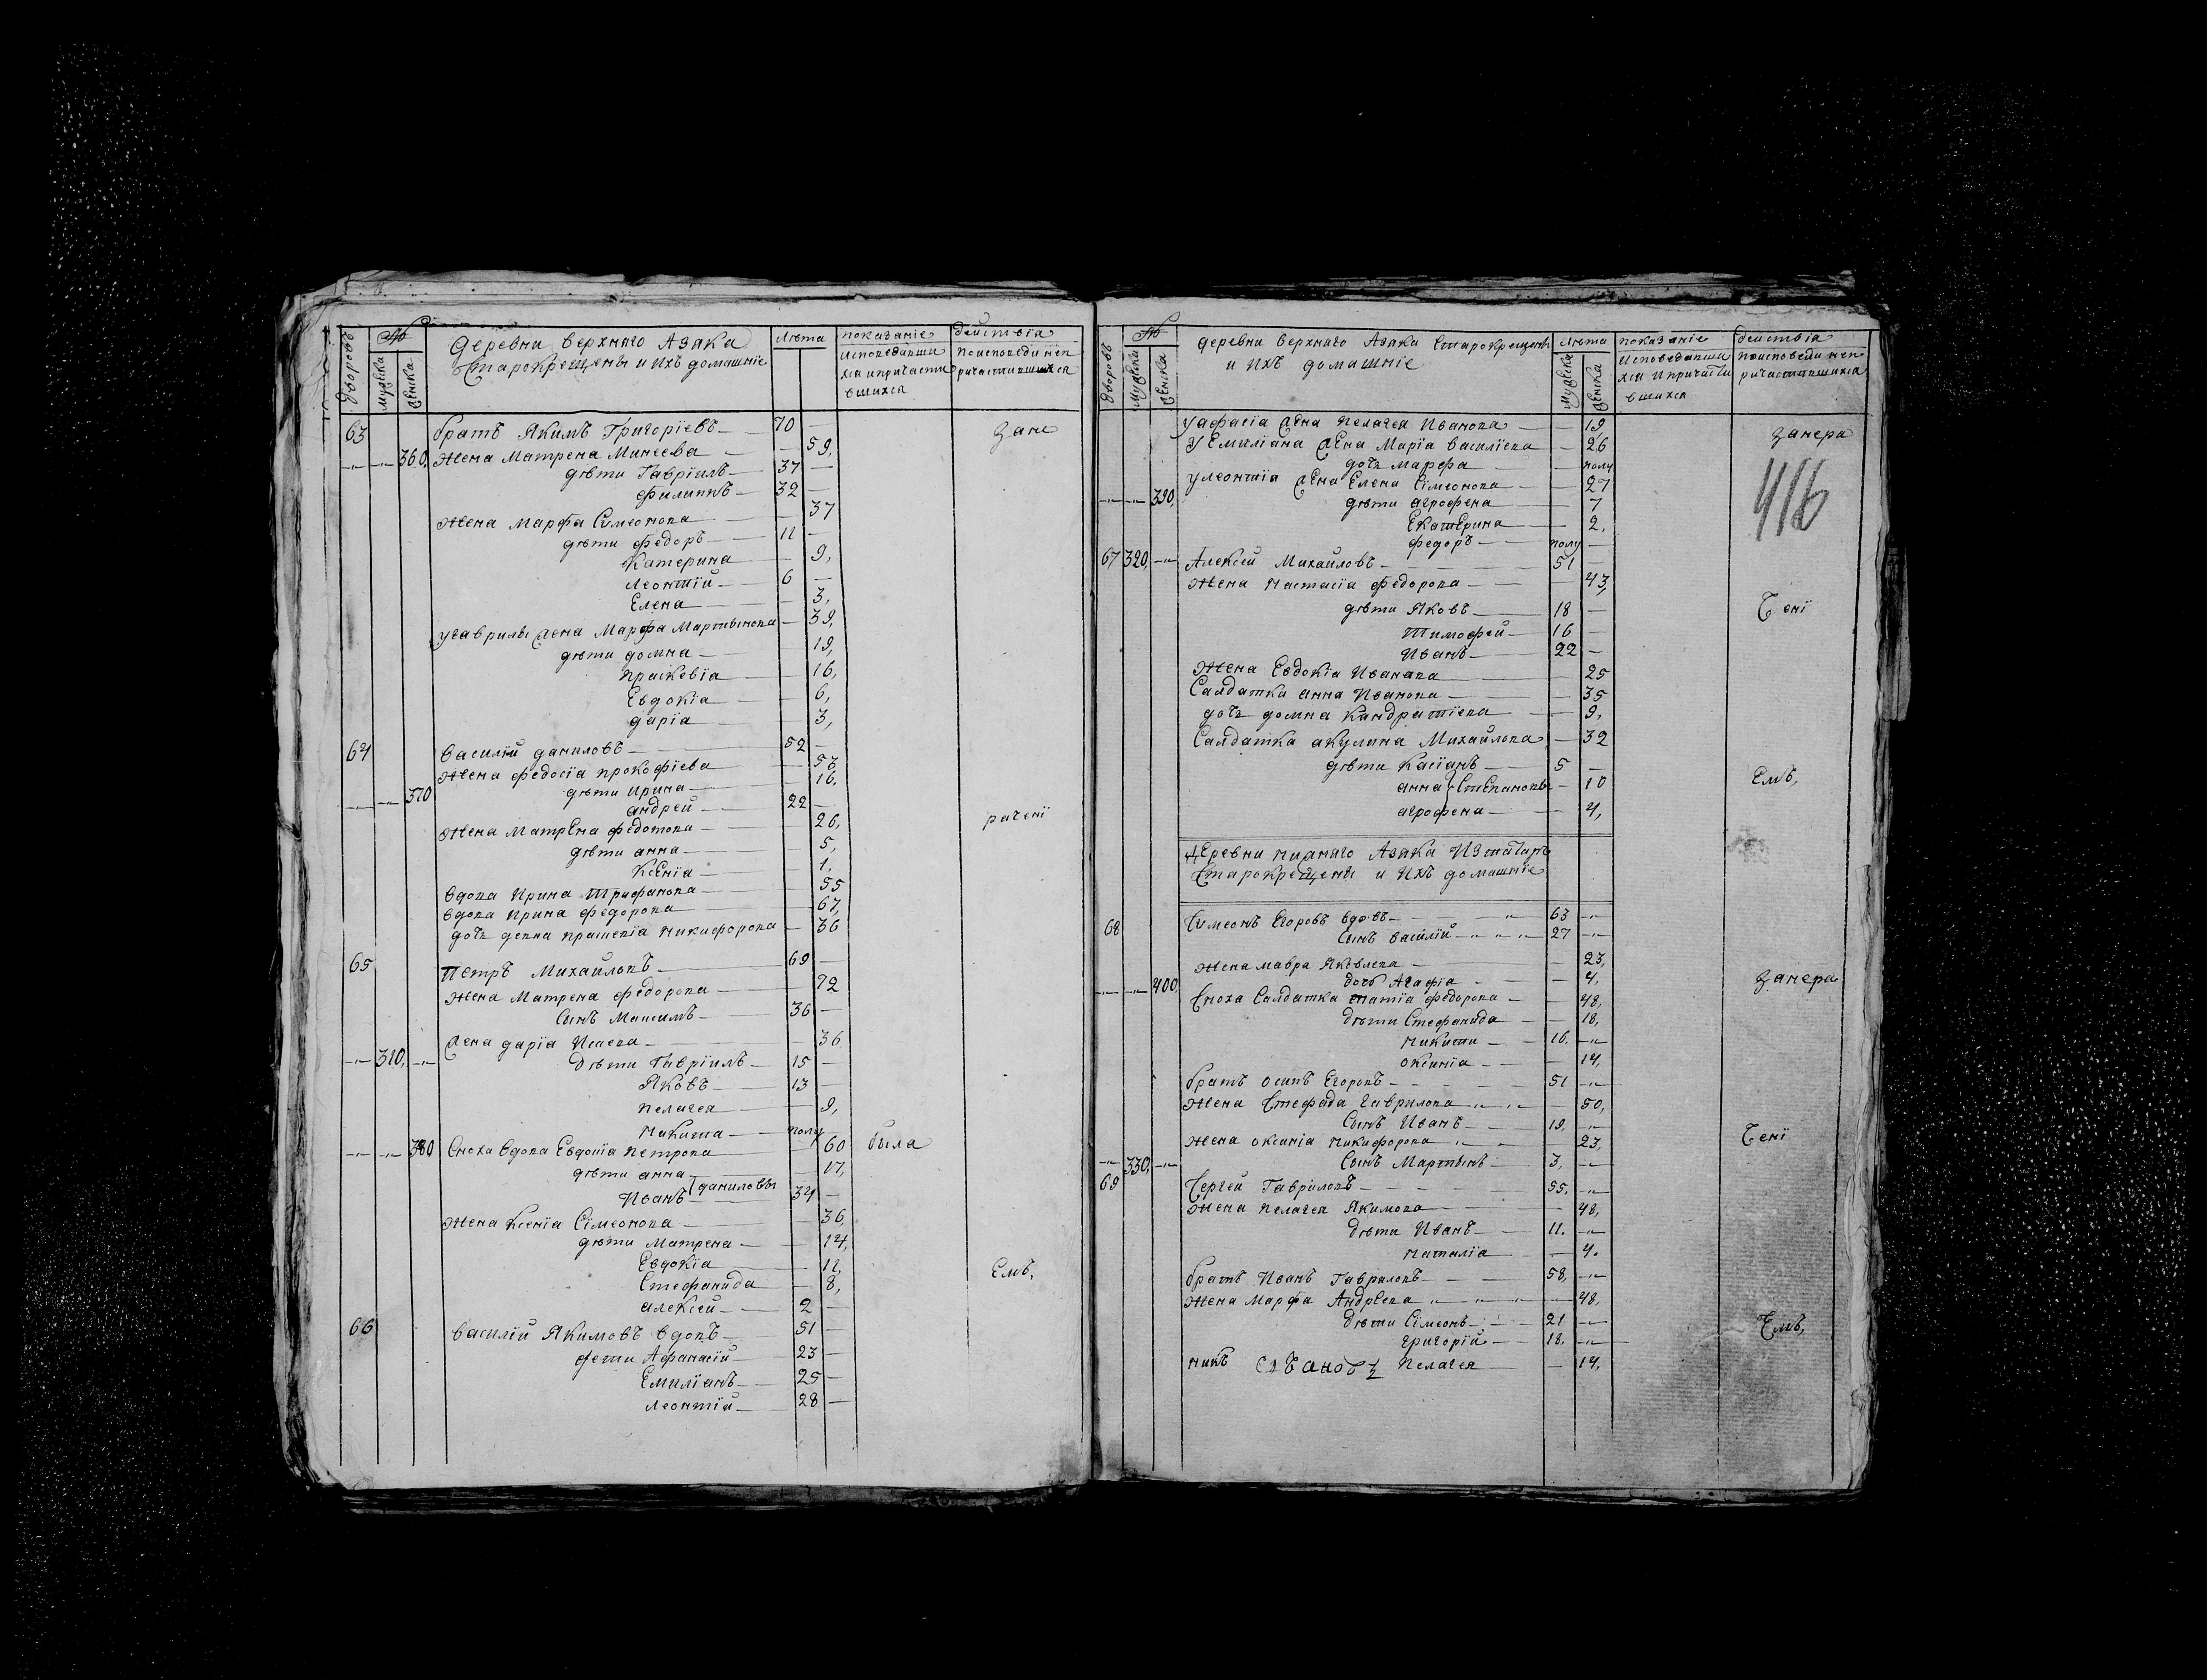 дворовъ
№
мужска
женска
деревни верхняго Азяка
Старокрещены и ихъ домашние
Лѣта
показаніе
действіа
исповедавши
хся и причасти
вшихся
по исповеди неп
ричастившихся
63 братъ Якимъ Григорїевъ 70 зане
360, жена Матрена Минеева 59,
дѣти Гаврїилъ 37
филиппъ 32
жена Марфа Симеонова 37
дѣти федоръ 11
Катерина 9,
Леонтїй 6
Елена 3,
у гаврилы жена Марфа Мартынова 39,
дѣти домна 19,
праскевїа 16,
Евдокїа 6,
дарїа 3,
64 василїй даниловъ 52
жена федосїа прокофїева 53
дѣти ирина 16,
370 андрей 22
жена Матрена федотова 26, раченї
дѣти анна 5,
Ксенїа 1,
вдова Ирина трифанова 55
вдова ирина федорова 67,
дочь девка Никифорова 36
65 Петръ Михайловъ 69
жена Матрена федорова 72
сынъ Максимъ 36
жена дарїа Исаева 36
310, дѣти Гаврїилъ 15
Яковъ 13
пелагея 9,
никита полу
380 Сноха вдова Евдокїа петрова 60 была
дѣти анна 17,
даниловы
Иванъ 34
жена Ксенїа Сїмеонова 36
дѣти Матрена 14,
Евдокїа 12,
Стефанида 8, Емъ,
алексей 2
66 василїй Якимовъ вдовъ 51
дети Афанасїй 23
Емилїанъ 25
леонтїй 28
дворовъ
№
мужска
женска
деревни верхняго Азяка Старокрещены
и ихъ домашнїе
Лѣта
мужска
женска
показанїе
действїа
исповедавши
хся и причасти
вшихся
по исповеди неп
ричастившихся
жена пелагея Иванова 19, занера
у Емилїана жена Марїа василїева 26
416
дочь марфа полу
у леонтїа жена Елена Сїмеонова 27
390, дѣти агрофена 7
Екатерина 2,
федоръ полу
67 320, Алексей Михайловъ 51
жена настасїа федорова 43,
дѣти Яковъ 18 ченї
тимофей 16
Иванъ 22
жена Евдокїа Иванова 25
Салдатка анна Иванова 35
дочь домна Кандратїева 9,
Салдатка акулина Михайлова 32
дѣти Касїанъ 5
анна Степановы 10 Емъ,
агрофена 4,
Деревни нижняго Азяка Из татаръ
Старокрещены и ихъ домашнїе
68 Симеонъ Егоровъ вдовъ 63
сынъ василїй 27
жена мавра Яковлева 23,
400 дочь Агафїа 4, занера
Сноха Салдатка федорова 48,
дѣти Стефанида 18,
никита 16,
оксинїа 14,
братъ осипъ Егоровъ 51
жена гаврилова 50,
сынъ Иванъ 19,
жена оксинїа никифорова 23, ченї
330, сынъ Мартынъ 3,
69 Сергей Гавриловъ 55,
жена пелагея Якимова 48,
дѣти Иванъ 11.
наталїа 4.
братъ Иванъ Гавриловъ 58,
жена Марфа Андреева 48,
дѣти Сїмеонъ 21 Емъ,
григорїй 18,
никъ пелагея 14,